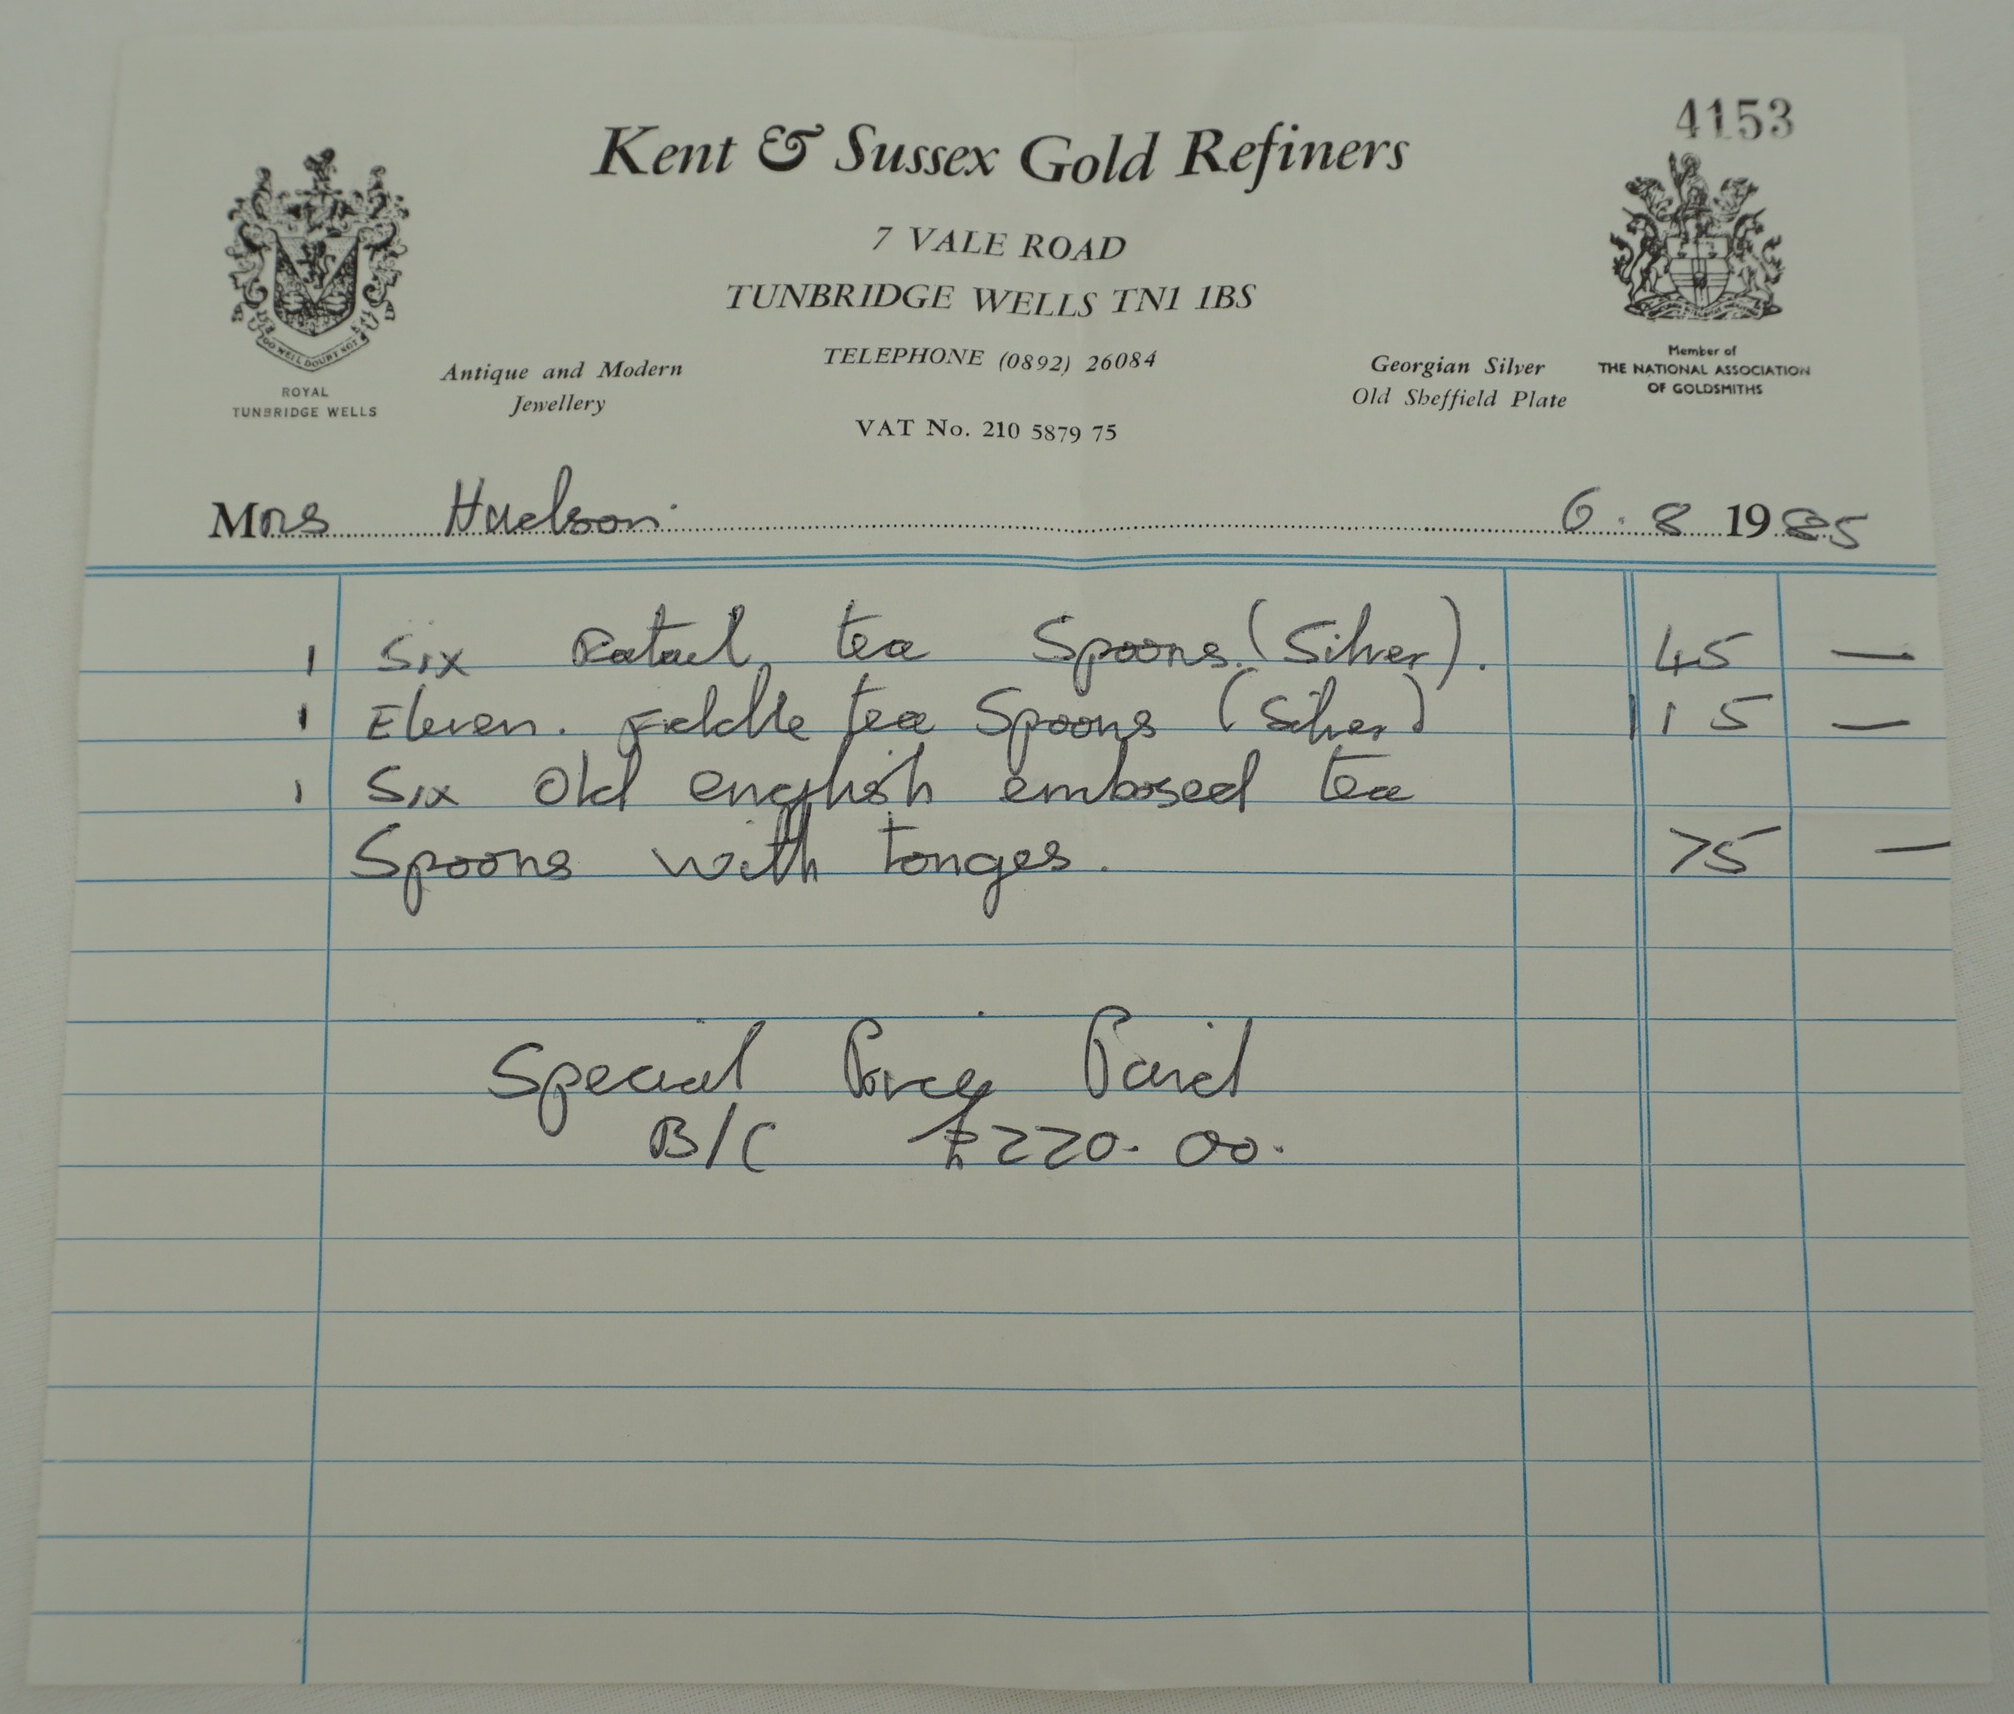 4153
Kent & Sussex Gold Refiners
7 VALE ROAD
TUNBRIDGE WELLS TN1 1BS
TELEPHONE (0892) 26084
VAT No. 210 5879 75
DO WELL DOUBT NOT
ROYAL
TUNBRIDGE WELLS
Antique and Modern
Jewellery
Georgian Silver
Old Sheffield Plate
Member of
THE NATIONAL ASSOCIATION
OF GOLDSMITHS
Mrs Hudson. 6.8 1985
1 Six Ratail tea Spoons. (Silver). 45 —
1 Eleven. Fiddle tea Spoons (Silver) 115 —
1 Six Old english embosed tea
Spoons with tonges. 75 —
Special Price Paid
B/C £220.00.